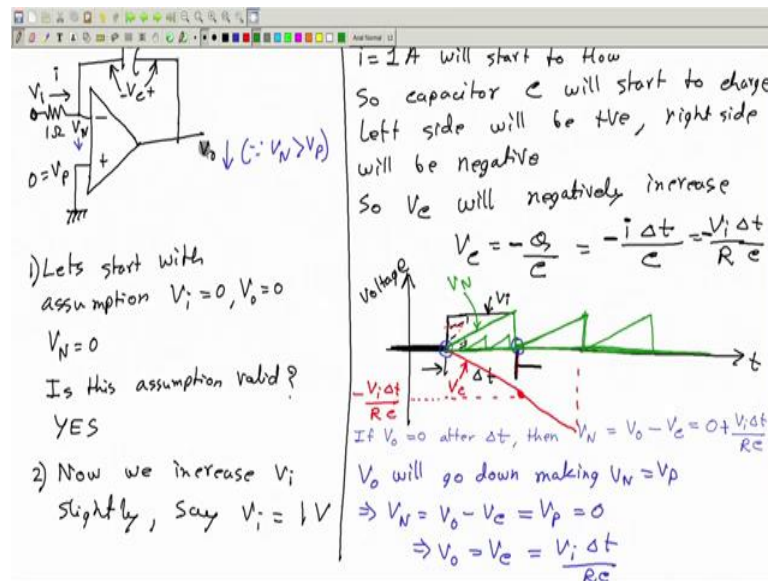 Arial Normal 12
Vi i
-Vc+
1Ω VN
-
+
0=VP
Vo ↓ (∵ VN>VP)
1) Lets start with
assumption Vi=0, Vo=0
VN=0
Is this assumption valid?
YES
2) Now we increase Vi
slightly, say Vi = 1V
i=1A will start to flow
So capacitor C will start to charge
Left side will be +ve, right side
will be negative
So Vc will negatively increase
Vc = -Q/C = -iΔt/C = -ViΔt/RC
Voltage
VN
Vi
t
Δt
Vc
-ViΔt/RC
If Vo=0 after Δt, then VN = Vo-Vc = 0+ViΔt/RC
Vo will go down making VN=VP
⇒ VN = Vo-Vc = VP = 0
⇒ Vo = Vc = ViΔt/RC